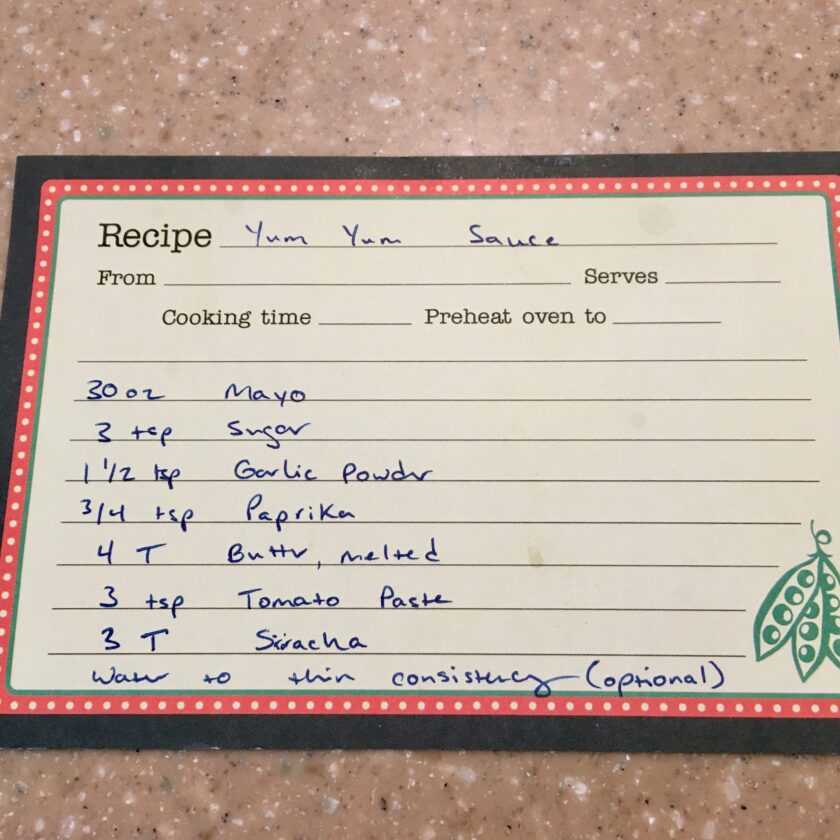 Recipe Yum Yum Sauce
From Serves
Cooking time Preheat oven to
30 oz Mayo
3 tsp Sugar
1 1/2 tsp Garlic Powder
3/4 tsp Paprika
4 T Butter, melted
3 tsp Tomato Paste
3 T Sriracha
Water to thin consistency (optional)